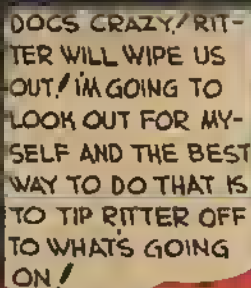 DOCS CRAZY! RIT-
TER WILL WIPE US
OUT! IM GOING TO
LOOK OUT FOR MY-
SELF AND THE BEST
WAY TO DO THAT IS
TO TIP RITTER OFF
TO WHAT'S GOING
ON!